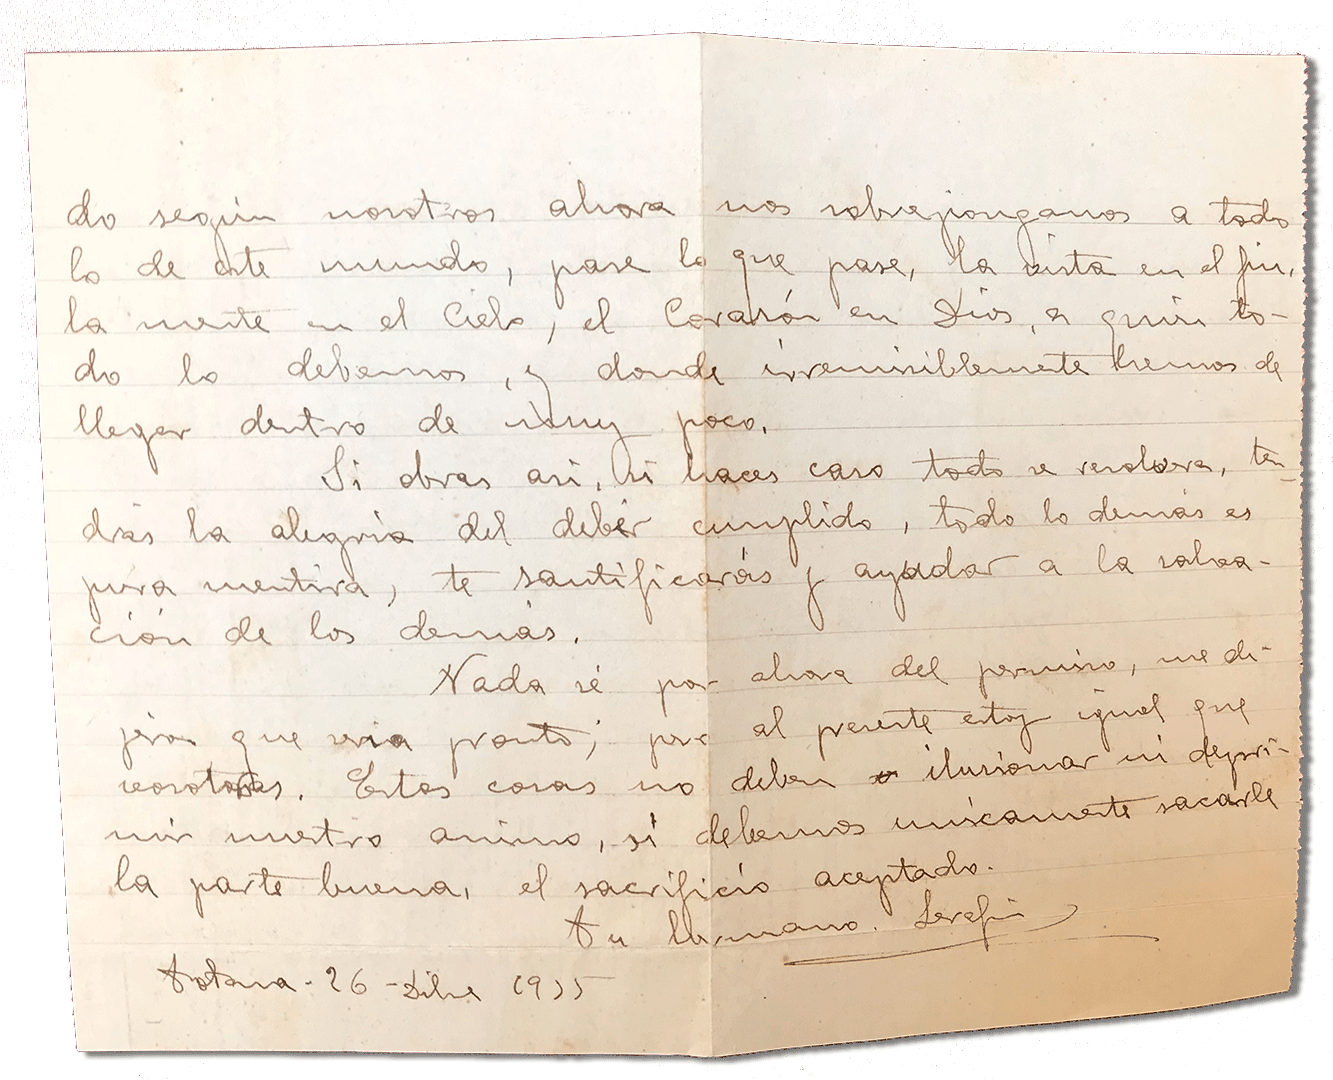 do según nosotros ahora nos sobrepongamos a todo
lo de este mundo, pase lo que pase, la vista en el fin,
la mente en el Cielo, el Corazón en Dios, a quien to-
do lo debemos, y donde irremisiblemente hemos de
llegar dentro de muy poco.
Si obras así, si haces caso todo se resolvera, ten-
drás la alegria del deber cumplido, todo lo demás es
pura mentira, te santificarás y ayudar a la salva-
ción de los demás.
Nada sé por ahora del permiso, me di-
jeron que seria pronto; pero al presente estoy igual que
vosotras. Estas cosas no deben ilusionar ni depri-
mir nuestro animo, si debemos unicamente sacarle
la parte buena, el sacrificio aceptado.
Tu hermano. Serafin
Totana - 26 - Dibre 1935